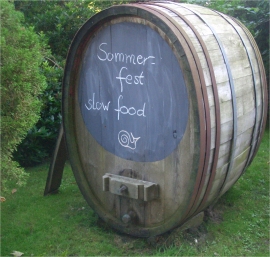 Sommer-
fest
slow food